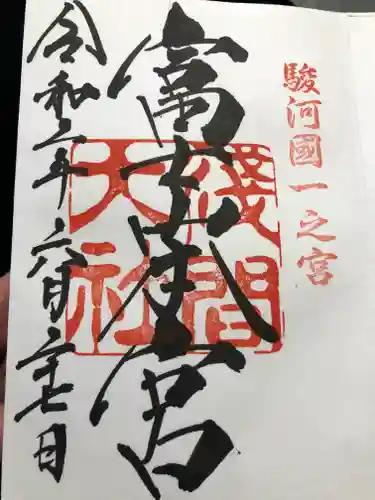 駿河國一之宮
富士本宮
淺間
大社
令和二年六月二十七日